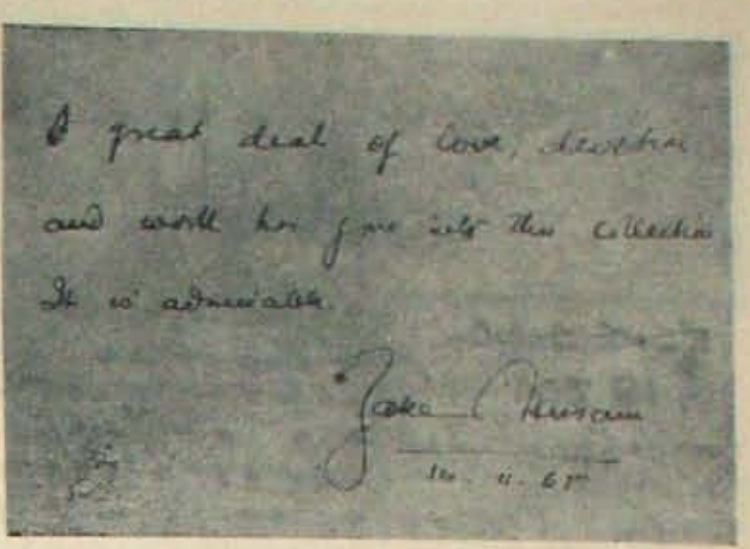 A great deal of love, devotion
and work has gone into this collection
It is admirable.
Zakir Husain